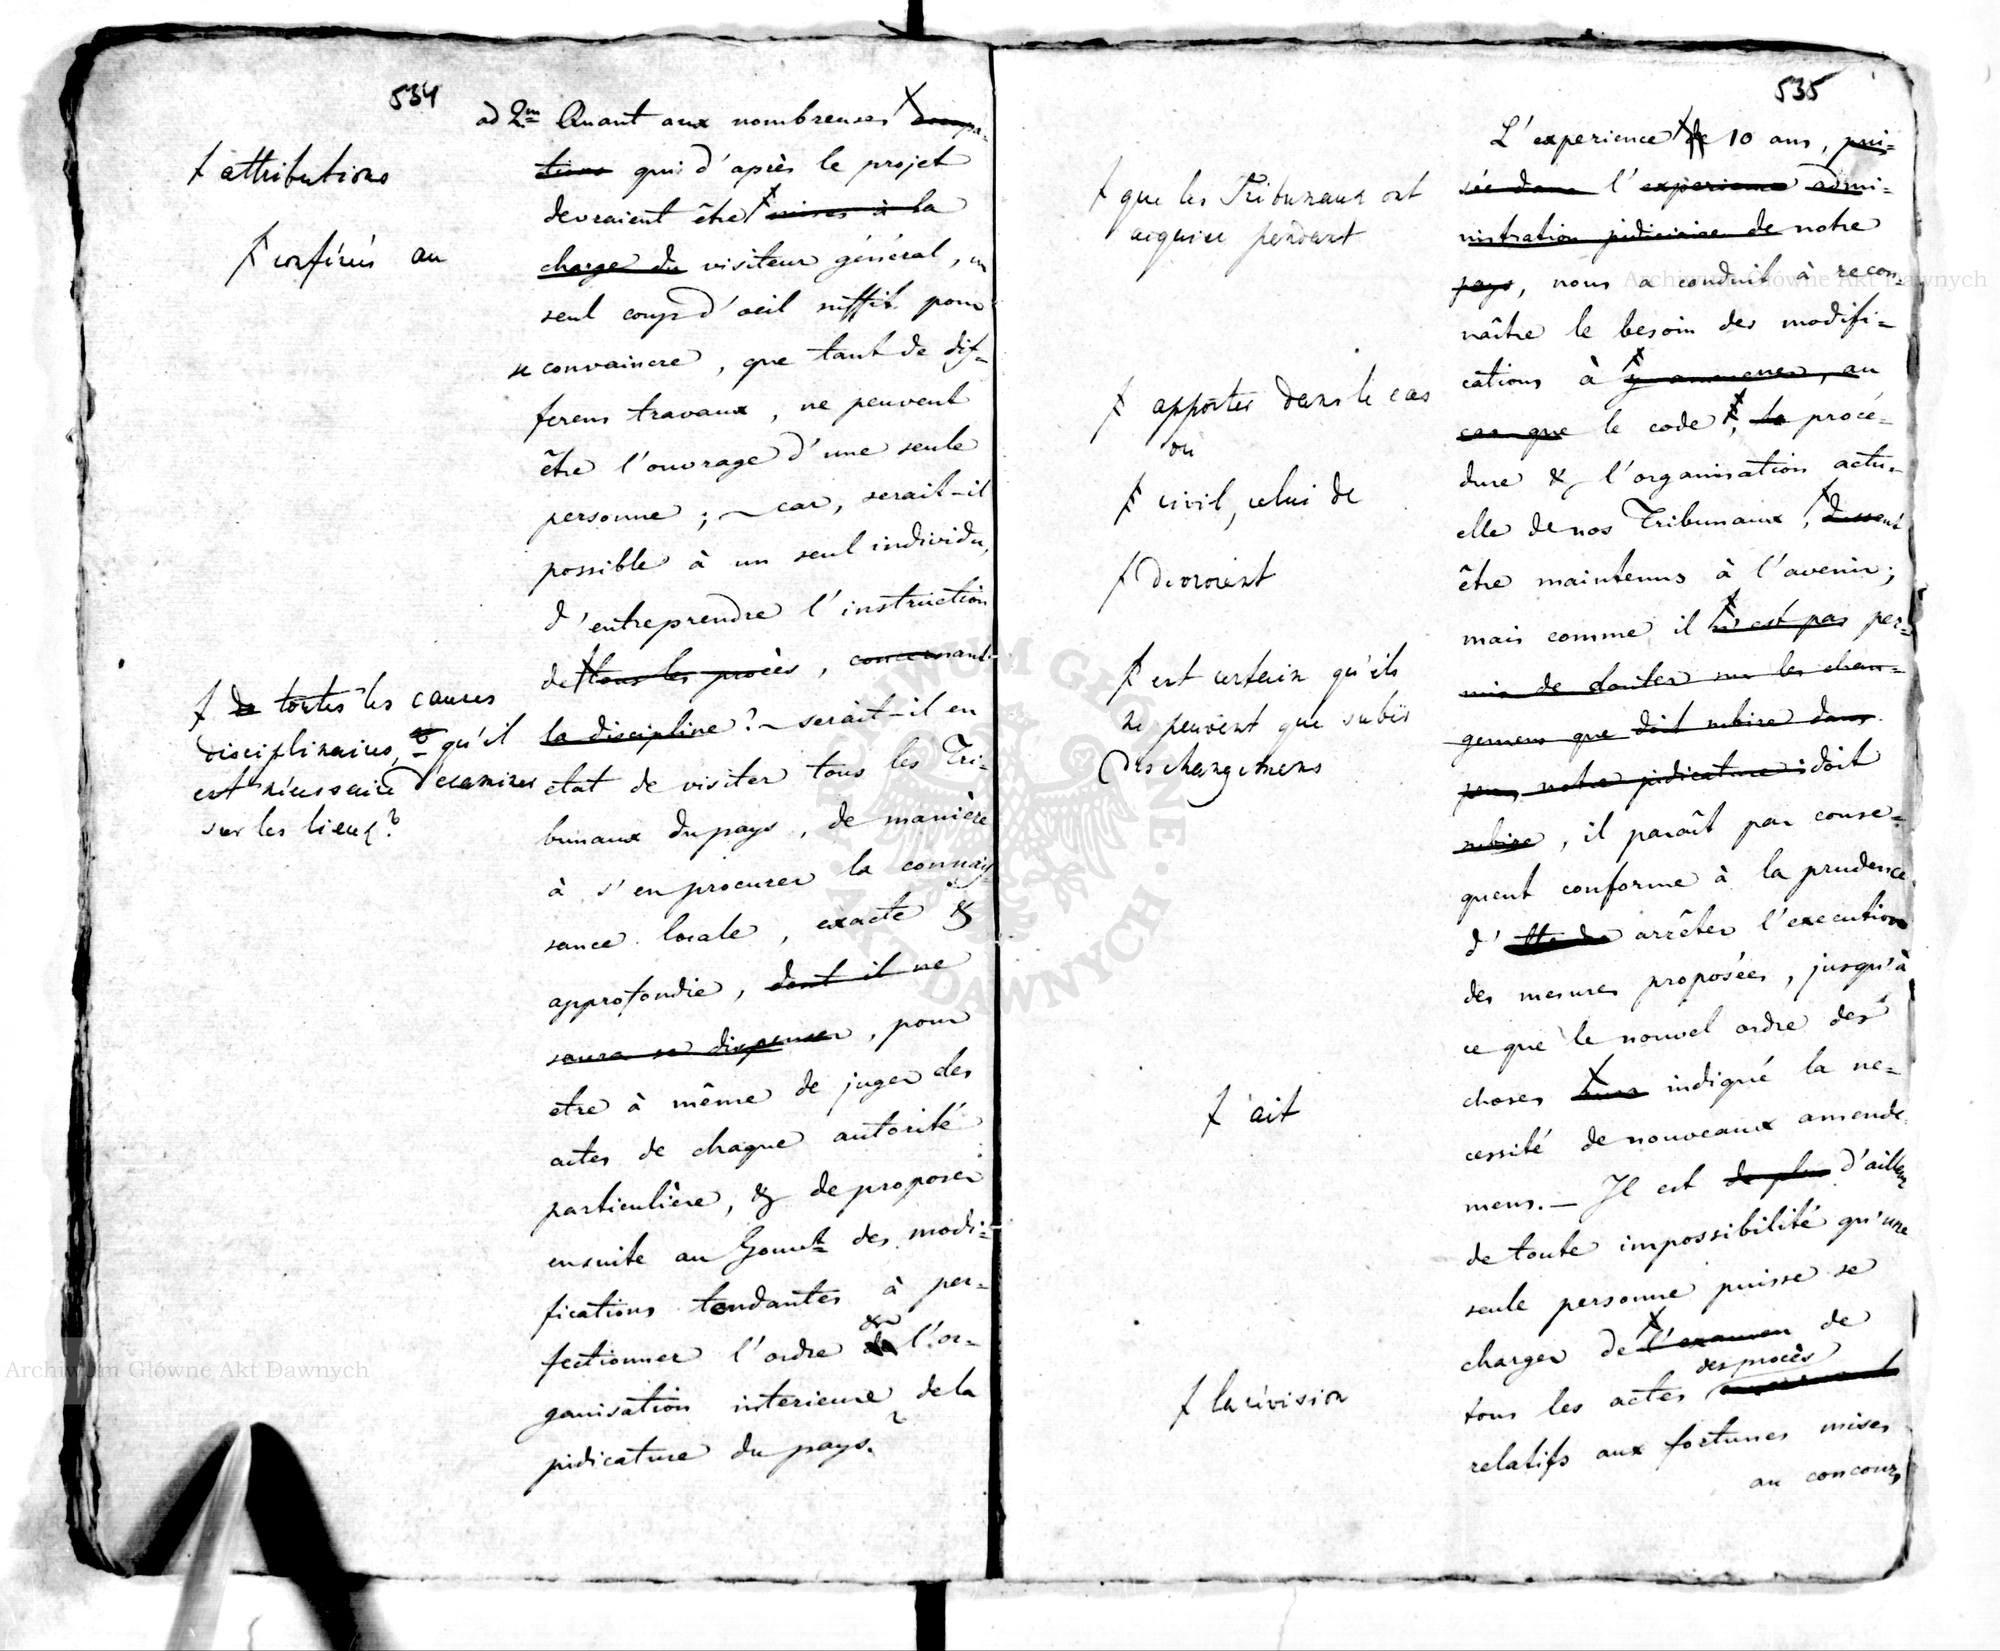 534
ad 2m Quant aux nombreuses occupa-
tions qui d'après le projet
devraient être mises à la
charge du visiteur général, un
seul coup d'oeil suffit pour
se convaincre, que tant de dif-
ferens travaux, ne peuvent
être l'ouvrage d'une seule
personne; car, serait-il
possible à un seul individu,
d'entreprendre l'instruction
de tous les procès, concernant
la discipline? serait-il en
état de visiter tous les Tri-
bunaux du pays, de manière
à s'en procurer la connais-
sance locale, exacte &
approfondie, dont il ne
saura se dispenser, pour
etre à même de juger des
actes de chaque autorité
particulière, & de proposer
ensuite au Gouvt des modi-
fications tendantes à per-
fectionner l'ordre & l'or-
ganisation interieure de la
judicature du pays.
attributions
conférés au
de toutes les causes
disciplinaires, qu'il
est nécessaire d'examiner
sur les lieux?
535
L'experience de 10 ans, pui-
sée dans l'experience admi-
nistration judiciaire de notre
pays, nous a conduit à recon-
naître le besoin des modifi-
cations à y amener, au
cas que le code, la procé-
dure & l'organisation actu-
elle de nos Tribunaux, dussent
être maintenus à l'avenir;
mais comme il n'est pas per-
mis de douter sur les chan-
gemens que doit subire dans
peu, notre judicature doit
subire, il paraît par conse-
quent conforme à la prudence
d' arrêter l'execution
des mesures proposées, jusqu'à
ce que le nouvel ordre des
choses aura indiqué la ne-
cessité de nouveaux amende-
mens. — Il est de plus d'ailleurs
de toute impossibilité qu'une
seule personne puisse se
charger de l'examen de
tous les actes des procès
relatifs aux fortunes mises
au concours
que les Tribunaux ont
acquise pendant
apporter dans le cas
où
civil, celui de
devroient
est certain qu'ils
ne peuvent que subir
des changemens
ait
la révision